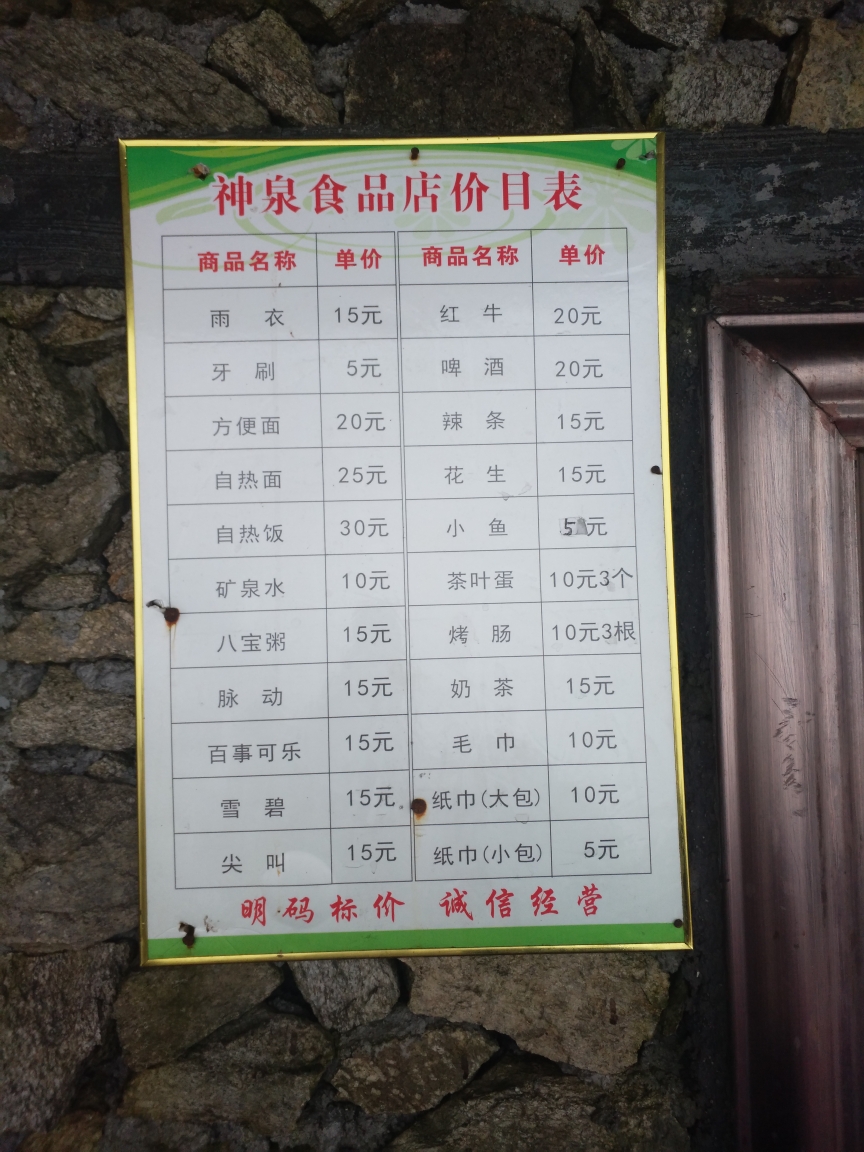 神泉食品店价目表
商品名称 单价 商品名称 单价
雨衣 15元 红牛 20元
牙刷 5元 啤酒 20元
方便面 20元 辣条 15元
自热面 25元 花生 15元
自热饭 30元 小鱼 5元
矿泉水 10元 茶叶蛋 10元3个
八宝粥 15元 烤肠 10元3根
脉动 15元 奶茶 15元
百事可乐 15元 毛巾 10元
雪碧 15元 纸巾(大包) 10元
尖叫 15元 纸巾(小包) 5元
明码标价 诚信经营